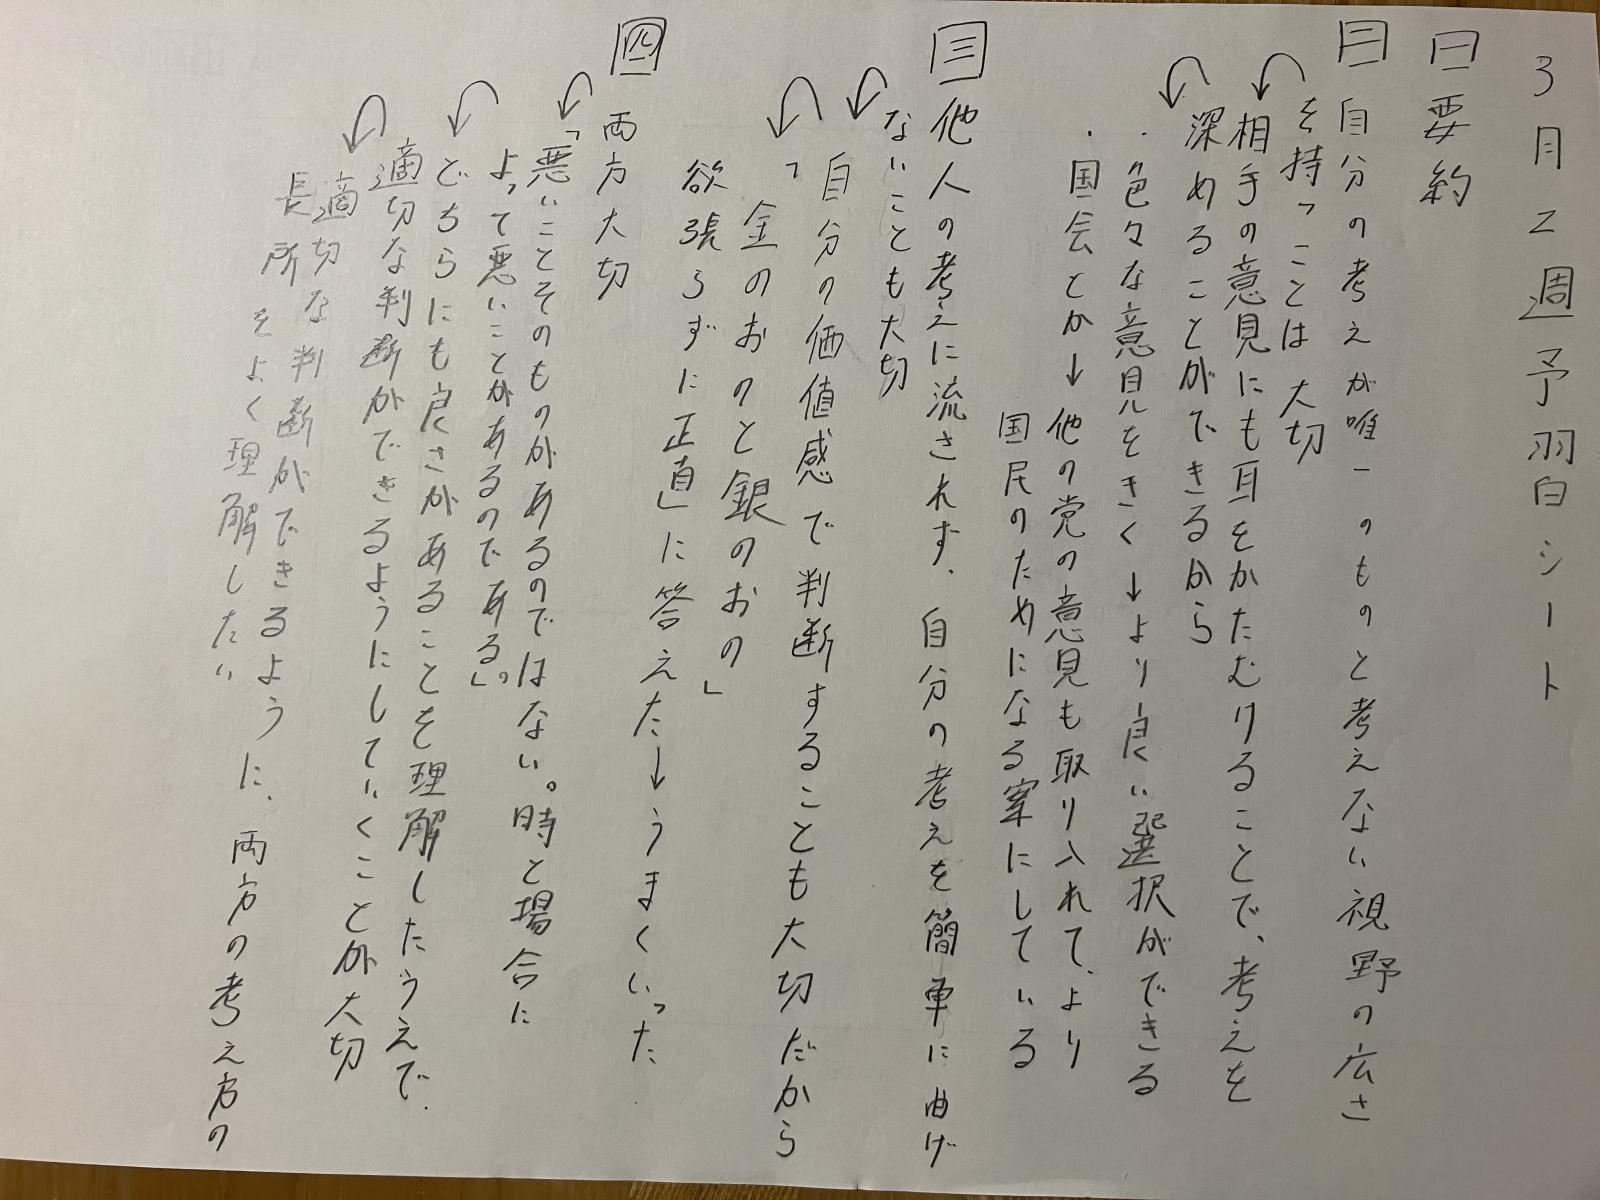 3月2週予習シート
一 要約
二 自分の考えが唯一のものと考えない視野の広さ
を持つことは大切
相手の意見にも耳をかたむけることで、考えを
深めることができるから
・色々な意見をきく→より良い選択ができる
・国会とか→他の党の意見も取り入れて、より
国民のためになる案にしている
三 他人の考えに流されず、自分の考えを簡単に曲げ
ないことも大切
自分の価値感で判断することも大切だから
「金のおのと銀のおの」
欲張らずに正直に答えた→うまくいった
四 両方大切
「悪いことそのものがあるのではない。時と場合に
よって悪いことがあるのである。」
どちらにも良さがあることを理解したうえで、
適切な判断ができるようにしていくことが大切
適切な判断ができるように、両方の考え方の
長所をよく理解したい